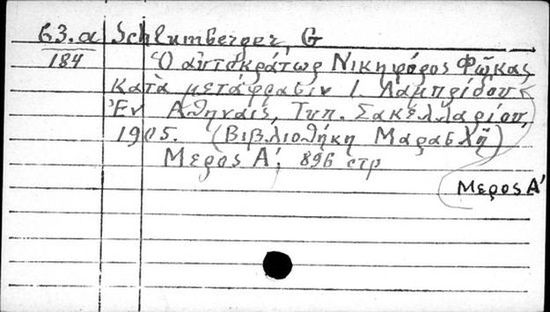 63.α Schlumberger, G
184 Ὁ αὐτοκράτωρ Νικηφόρος Φωκᾶς
Κατὰ μετάφρασιν Ι. Λαμπρίδου
Ἐν Ἀθήναις, Τυπ. Σακελλαρίου,
1905. (Βιβλιοθήκη Μαρασλῆ)
Μερος Α΄, 896 στρ
Μερος Α΄